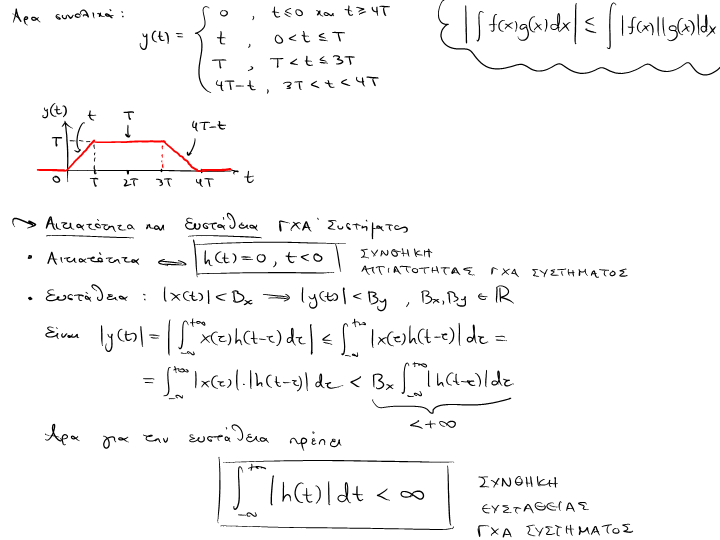 Άρα συνολικά: y(t) = { 0 , t ≤ 0 και t ≥ 4T
t , 0 < t ≤ T
T , T < t ≤ 3T
4T-t , 3T < t < 4T
|∫ f(x)g(x)dx| ≤ ∫ |f(x)||g(x)|dx
y(t) t T 4T-t
T
0 T 2T 3T 4T t
↝ Αιτιατότητα και Ευστάθεια ΓΧΑ Συστήματος
• Αιτιατότητα ⟺ h(t) = 0 , t < 0 ΣΥΝΘΗΚΗ
ΑΙΤΙΑΤΟΤΗΤΑΣ ΓΧΑ ΣΥΣΤΗΜΑΤΟΣ
• Ευστάθεια : |x(t)| < Bx ⟹ |y(t)| < By , Bx, By ∈ ℝ
Είναι |y(t)| = |∫_{-∞}^{+∞} x(τ)h(t-τ)dτ| ≤ ∫_{-∞}^{+∞} |x(τ)h(t-τ)|dτ =
= ∫_{-∞}^{+∞} |x(τ)|.|h(t-τ)|dτ < Bx ∫_{-∞}^{+∞} |h(t-τ)|dτ
< +∞
Άρα για την ευστάθεια πρέπει
∫_{-∞}^{+∞} |h(t)|dt < ∞
ΣΥΝΘΗΚΗ
ΕΥΣΤΑΘΕΙΑΣ
ΓΧΑ ΣΥΣΤΗΜΑΤΟΣ